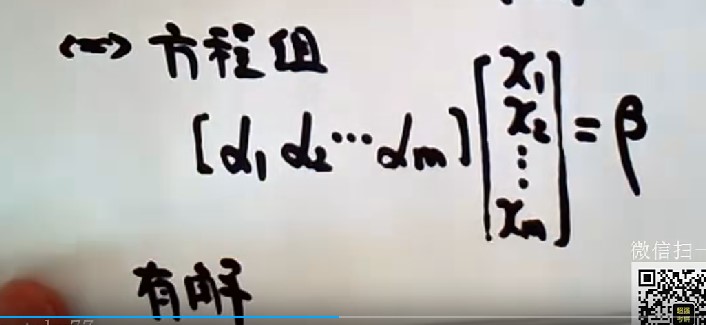 <=> 方程组
[α₁ α₂ ⋯ αₘ] [x₁ x₂ ⋮ xₘ] = β
有解
微信扫一